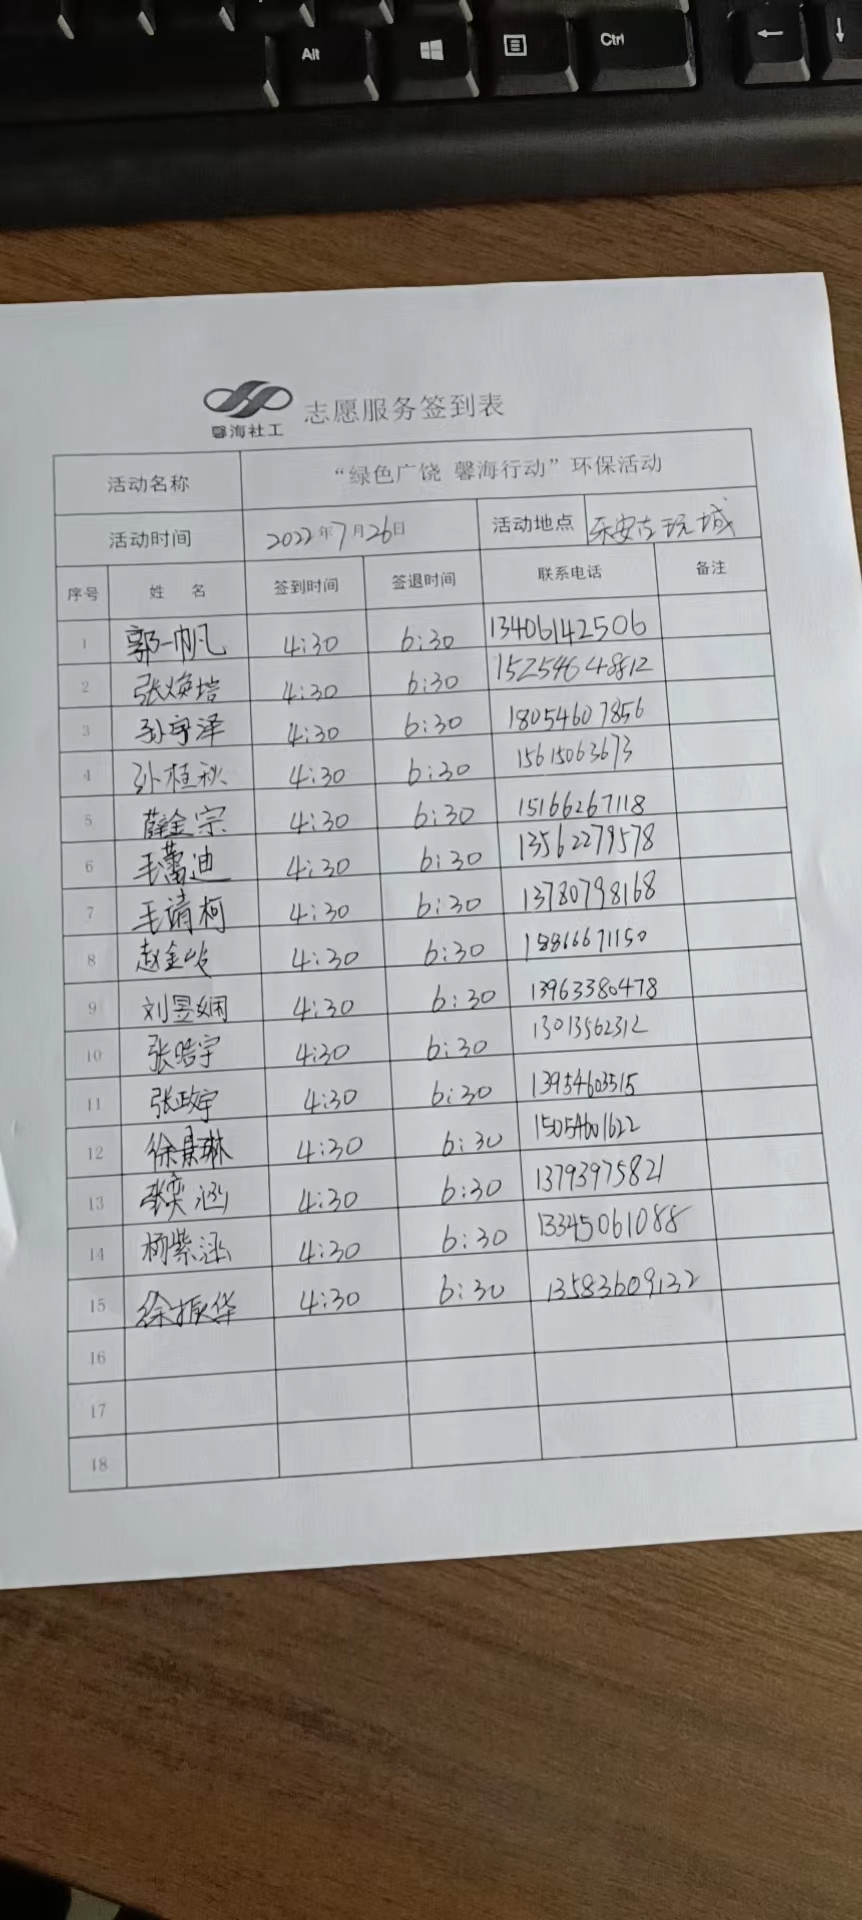 Alt
Ctrl
馨海社工
志愿服务签到表
活动名称 “绿色广饶 馨海行动”环保活动
活动时间 2022年7月26日 活动地点 乐安古玩城
序号 姓 名 签到时间 签退时间 联系电话 备注
1 郭一帆 4:30 6:30 13406142506
2 张焕培 4:30 6:30 15254648812
3 孙宇泽 4:30 6:30 18054607856
4 孙桂秋 4:30 6:30 15615063673
5 薛金宗 4:30 6:30 15166267118
6 毛蕾迪 4:30 6:30 13562279578
7 毛靖柯 4:30 6:30 13780798168
8 赵金 4:30 6:30 18816671150
9 刘昱娴 4:30 6:30 13963380478
10 张皓宇 4:30 6:30 13013562312
11 张政宇 4:30 6:30 13954603515
12 徐景琳 4:30 6:30 15054601622
13 张奕涵 4:30 6:30 13793975821
14 杨紫涵 4:30 6:30 13345061088
15 徐振华 4:30 6:30 13583609132
16
17
18